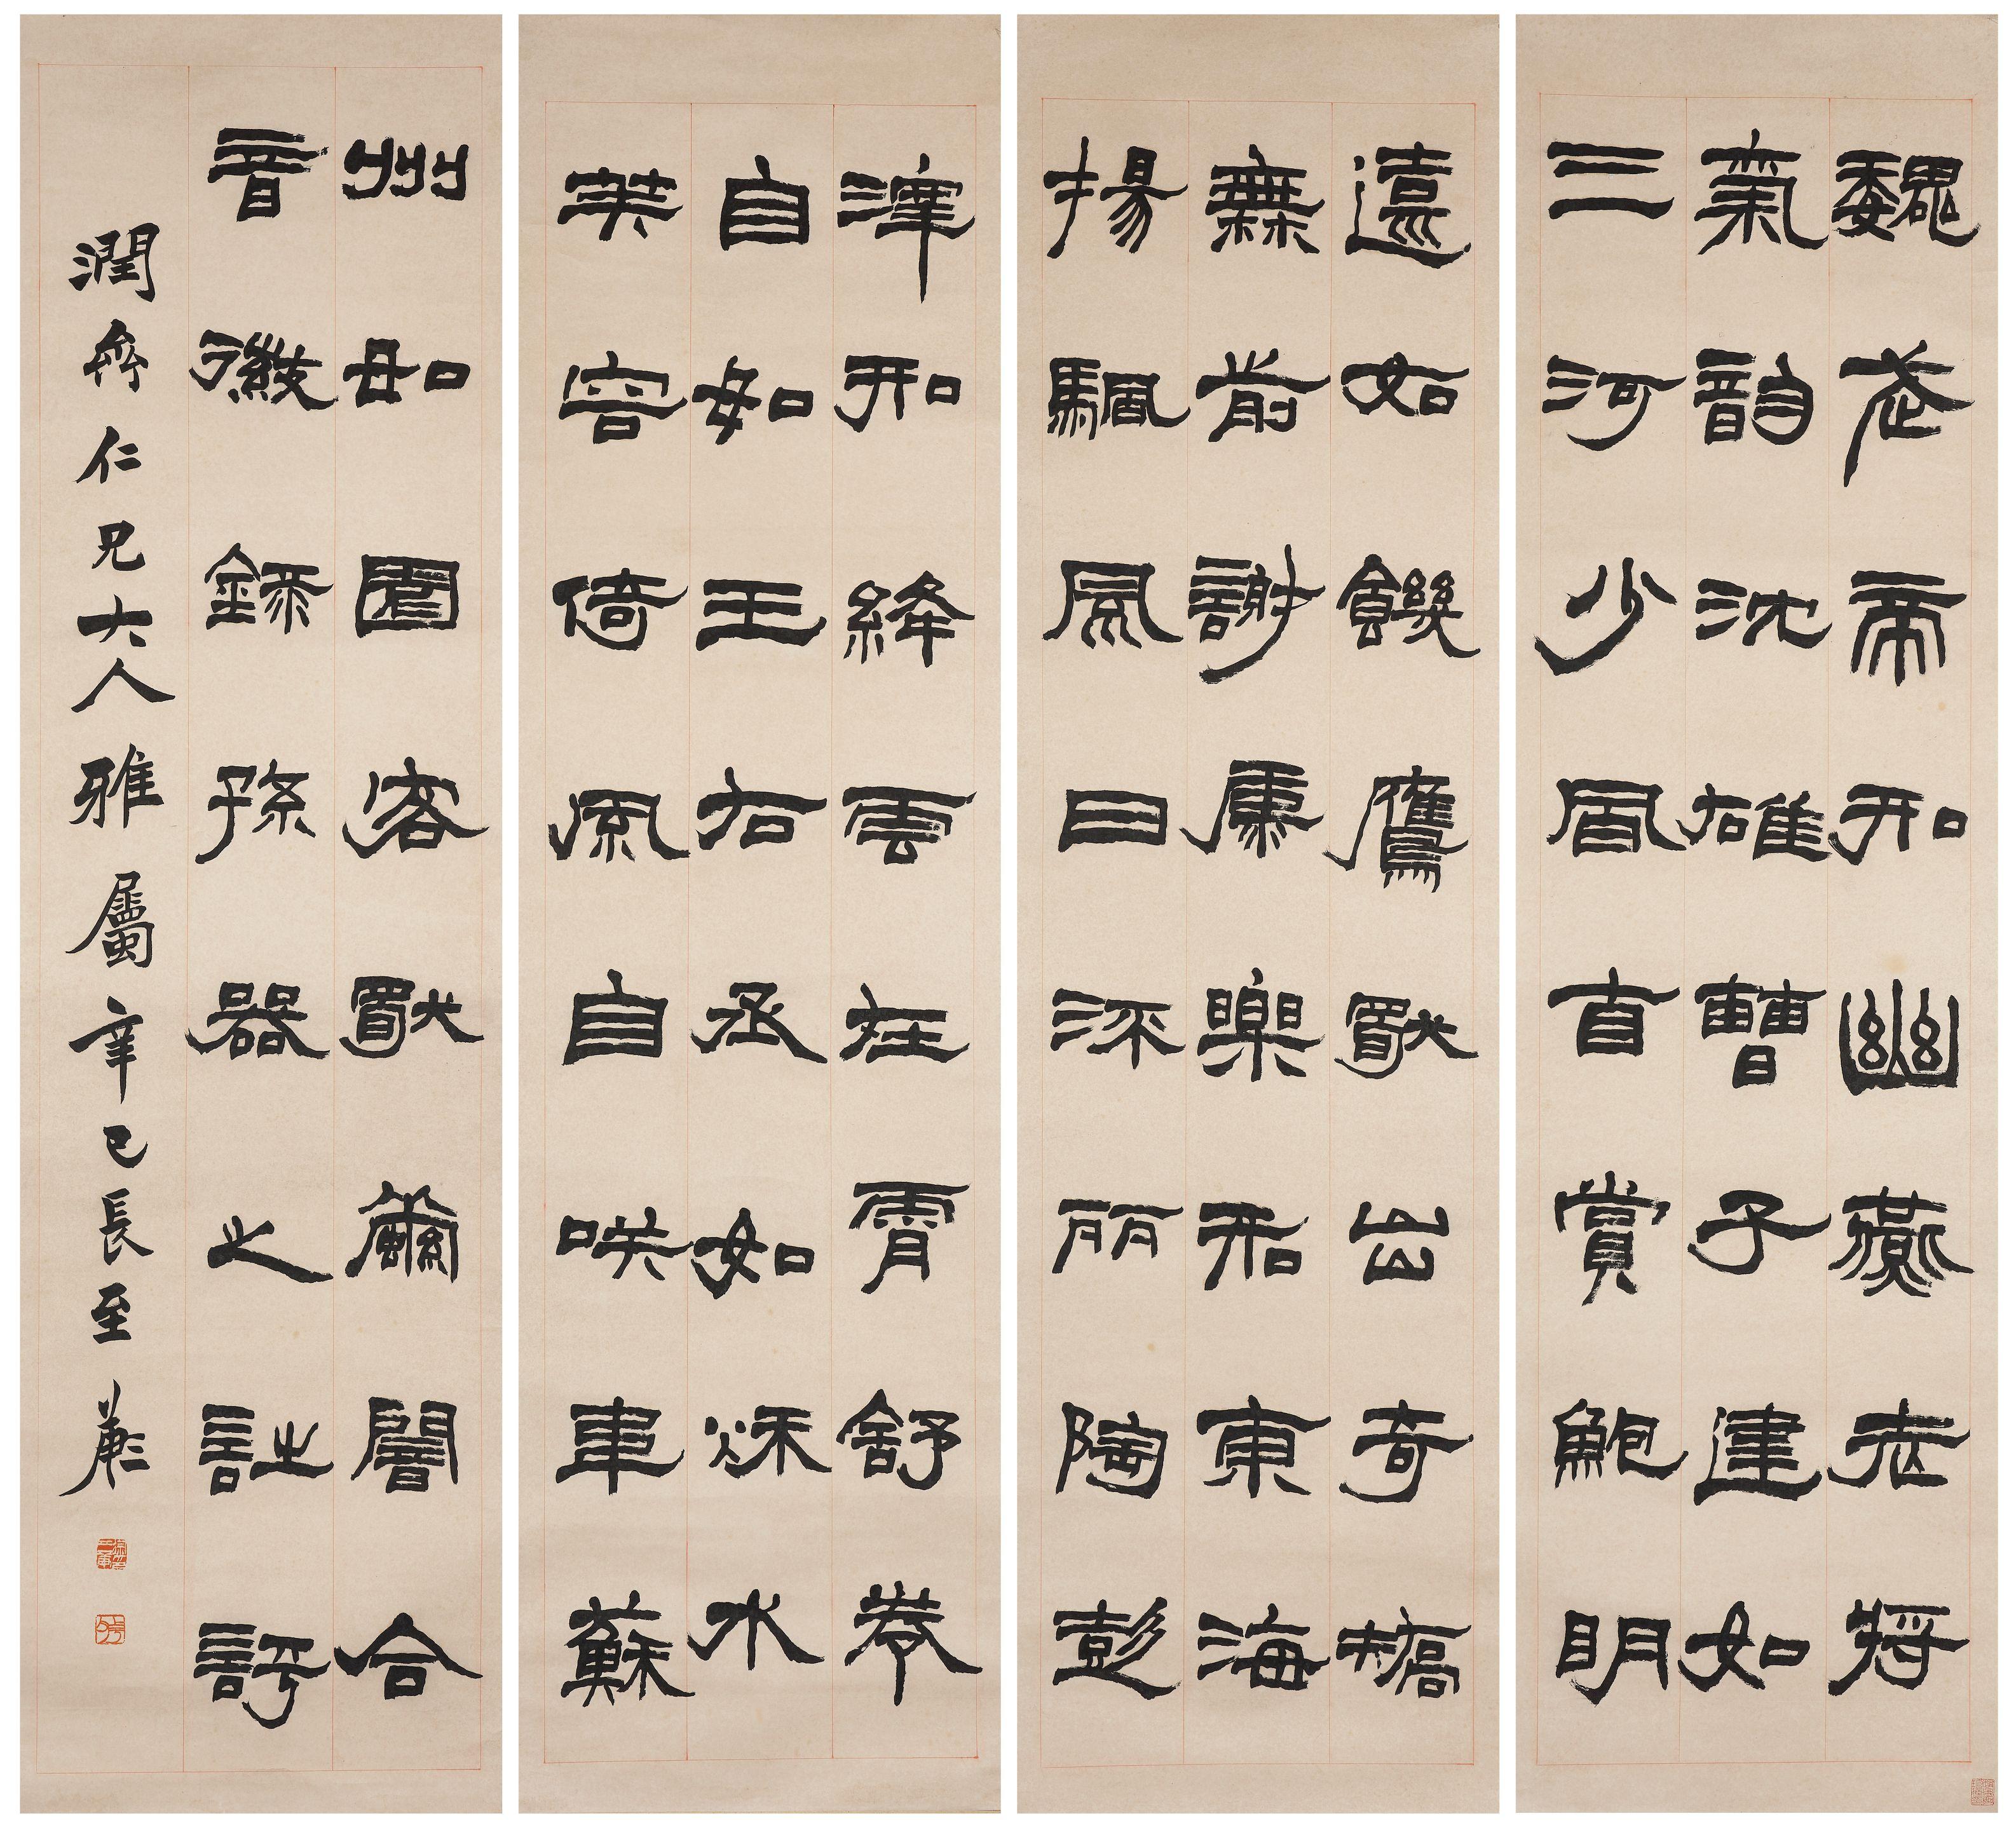 魏武帝如幽燕老將
氣韵沈雄曹子建如
三河少風自賞鮑明
遠如饑鷹獨出奇矯
無前謝康樂如東海
揚颿風日流麗陶彭
澤如絳雲在霄舒卷
自如王右丞如秋水
芙容倚風自咲韋蘇
州如園客獨繭闇合
音徽錄孫器之詩評
潤齋仁兄大人雅屬辛巳長至